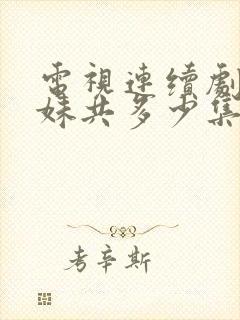 電視連續劇
妹共多少集
考辛斯